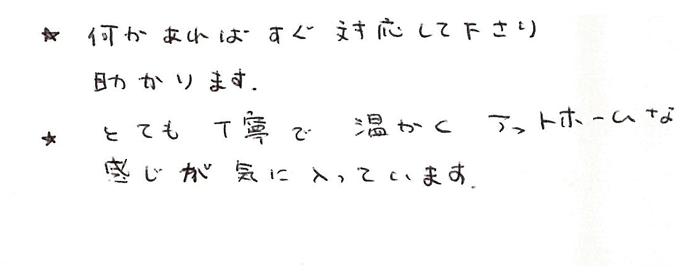 ★ 何かあればすぐ対応して下さり
助かります.
★ とても丁寧で 温かく アットホームな
感じが気に入っています.